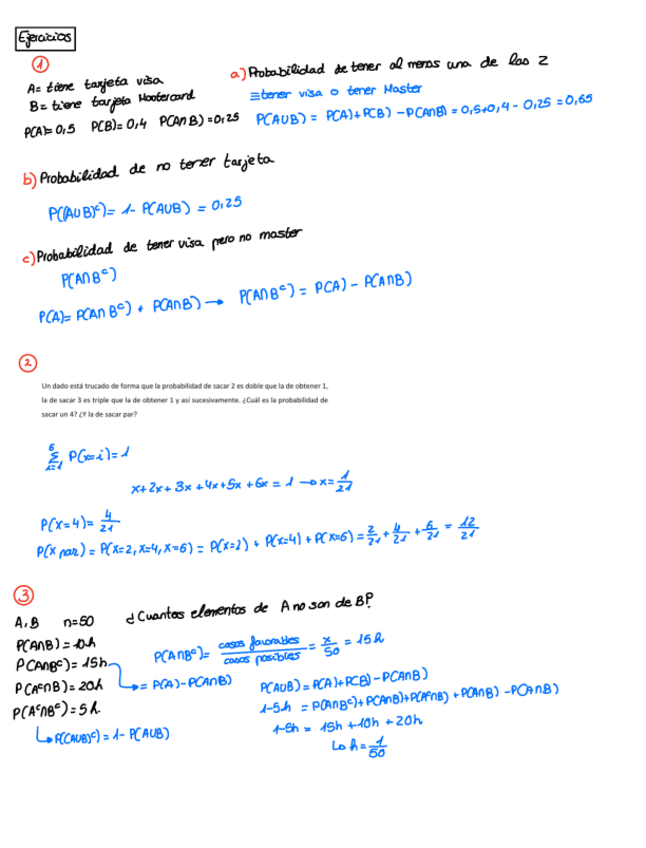 Ejercicios
①
A= tiene tarjeta visa
B= tiene tarjeta Mastercard
P(A)= 0,5 P(B)= 0,4 P(A∩B)=0,25
a) Probabilidad de tener al menos una de las 2
≡ tener visa o tener Master
P(AUB) = P(A)+P(B) - P(A∩B) = 0,5+0,4 - 0,25 = 0,65
b) Probabilidad de no tener tarjeta
P((AUB)ᶜ) = 1- P(AUB) = 0,25
c) Probabilidad de tener visa pero no master
P(A∩Bᶜ)
P(A)= P(A∩Bᶜ) + P(A∩B) → P(A∩Bᶜ) = P(A) - P(A∩B)
②
Un dado está trucado de forma que la probabilidad de sacar 2 es doble que la de obtener 1,
la de sacar 3 es triple que la de obtener 1 y así sucesivamente. ¿Cuál es la probabilidad de
sacar un 4? ¿Y la de sacar par?
6 Σ i=1 P(x=i)=1
x+2x+3x+4x+5x+6x = 1 → x= 1/21
P(x=4)= 4/21
P(x par) = P(x=2, x=4, x=6) = P(x=2) + P(x=4) + P(x=6) = 2/21 + 4/21 + 6/21 = 12/21
③
A,B n=50 ¿Cuantos elementos de A no son de B?
P(A∩B) = 10h
P(A∩Bᶜ)= 15h
P(Aᶜ∩B)= 20h
P(Aᶜ∩Bᶜ)= 5h.
↳ P((AUB)ᶜ) = 1- P(AUB)
P(A∩Bᶜ)= casos favorables/casos posibles = x/50 = 15h
↳ = P(A)-P(A∩B)
P(AUB)= P(A)+P(B)-P(A∩B)
1-5h = P(A∩Bᶜ)+P(A∩B)+P(Aᶜ∩B) + P(A∩B) -P(A∩B)
1-5h = 15h +10h + 20h
↳ h= 1/50